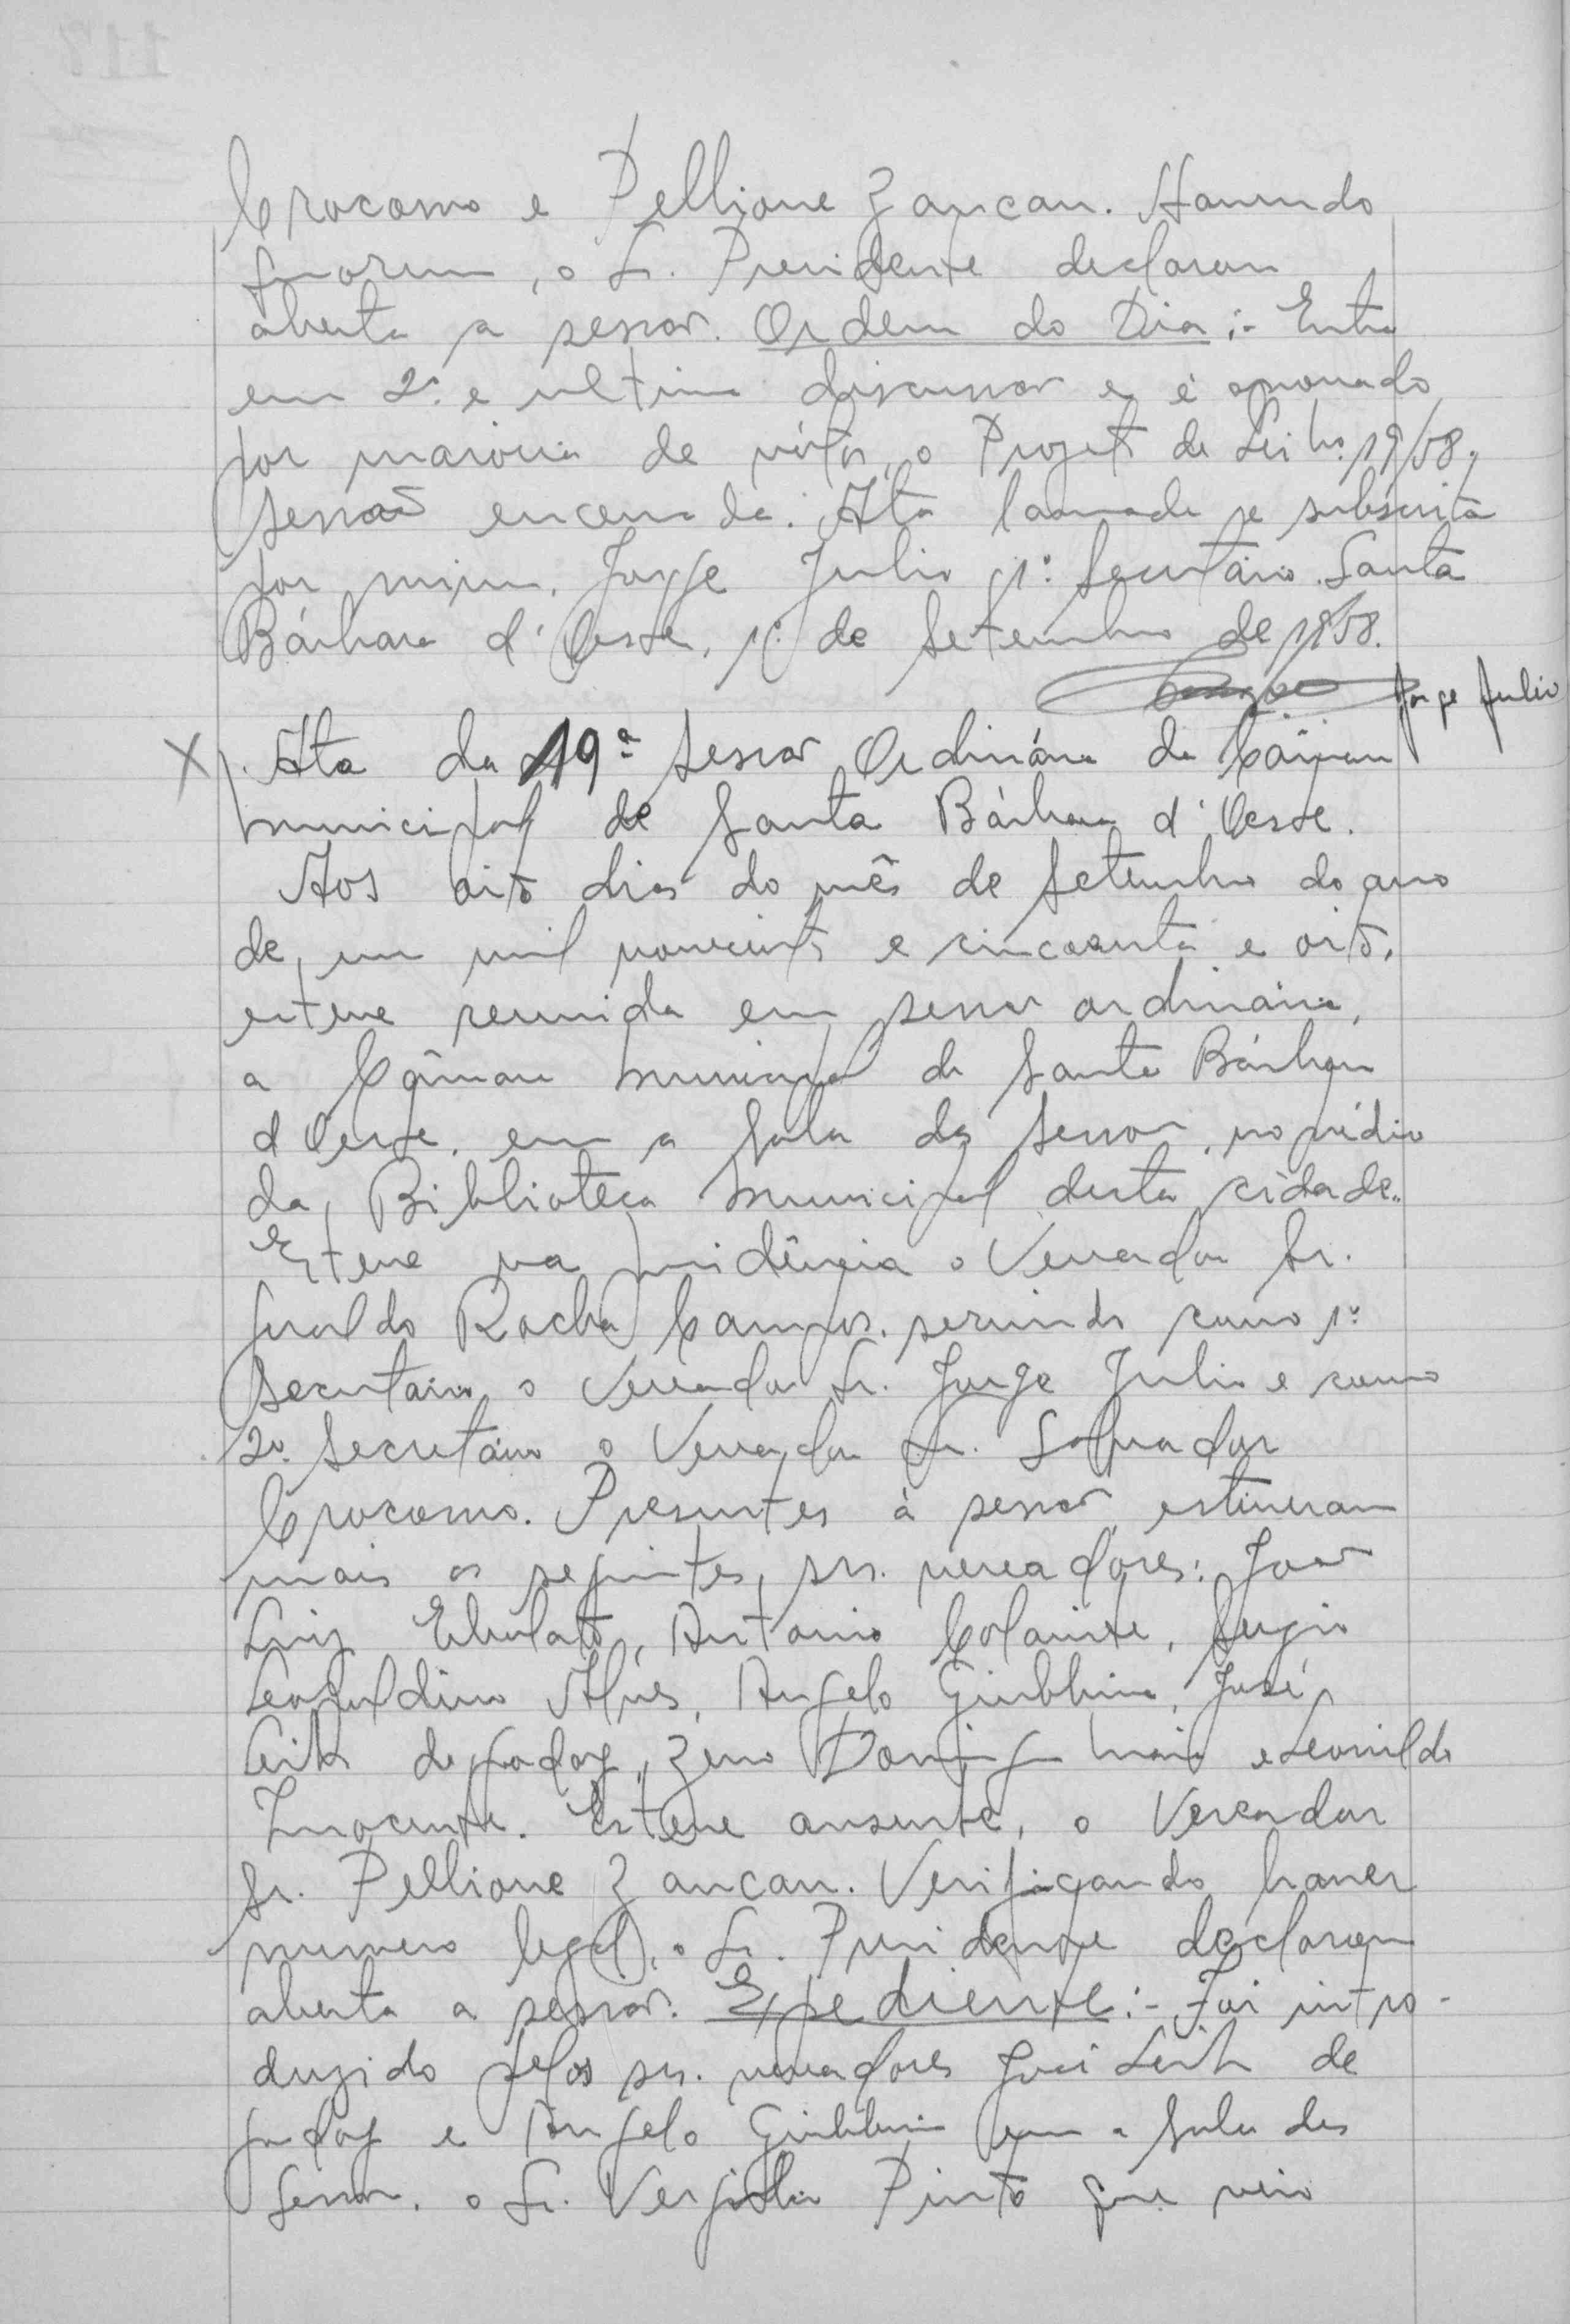 Crocomo e Pellione Zancan. Havendo
quorum, o Sr. Presidente declarou
aberta a sessão. Ordem do Dia :- Entra
em 2ª. e ultima discussão e é aprovado
por maioria de vótos, o Projeto de Lei no. 19/58.
Sessão encerrada. Ata lavrada e subscrita
por mim, Jorge Julio, 1º. Secretário. Santa
Bárbara d'Oeste, 1º. de Setembro de 1958.
Jorge Julio
Ata da 19ª Sessão Ordinária da Câmara
Municipal de Santa Bárbara d'Oeste.
Aos oito dias do mês de Setembro do ano
de um mil novecentos e cincoenta e oito,
esteve reunida em sessão ordinária,
a Câmara Municipal de Santa Bárbara
d'Oeste, em a Sala das Sessões, no prédio
da Biblioteca Municipal desta cidade.
Esteve na presidência o Vereador Sr.
Geraldo Rocha Campos, servindo como 1º.
Secretário, o Vereador Sr. Jorge Julio e como
2º. Secretário o Vereador Sr. Salvador
Crocomo. Presentes à sessão, estiveram
mais os seguintes, srs. vereadores: João
Luiz, Antonio, Sergio
Leopoldino Alves, Angelo Giubbina, José
Leite de Godoy, Zeno Maia e Leonildo
Inocente. Esteve ausente, o Vereador
Sr. Pellione Zancan. Verificando haver
numero legal, o Sr. Presidente declarou
aberta a sessão. Expediente :- Foi intro-
duzido pelos srs. vereadores José Leite de
Godoy e Angelo Giubbina em a Sala das
Sessões, o Sr. Pinto que veio